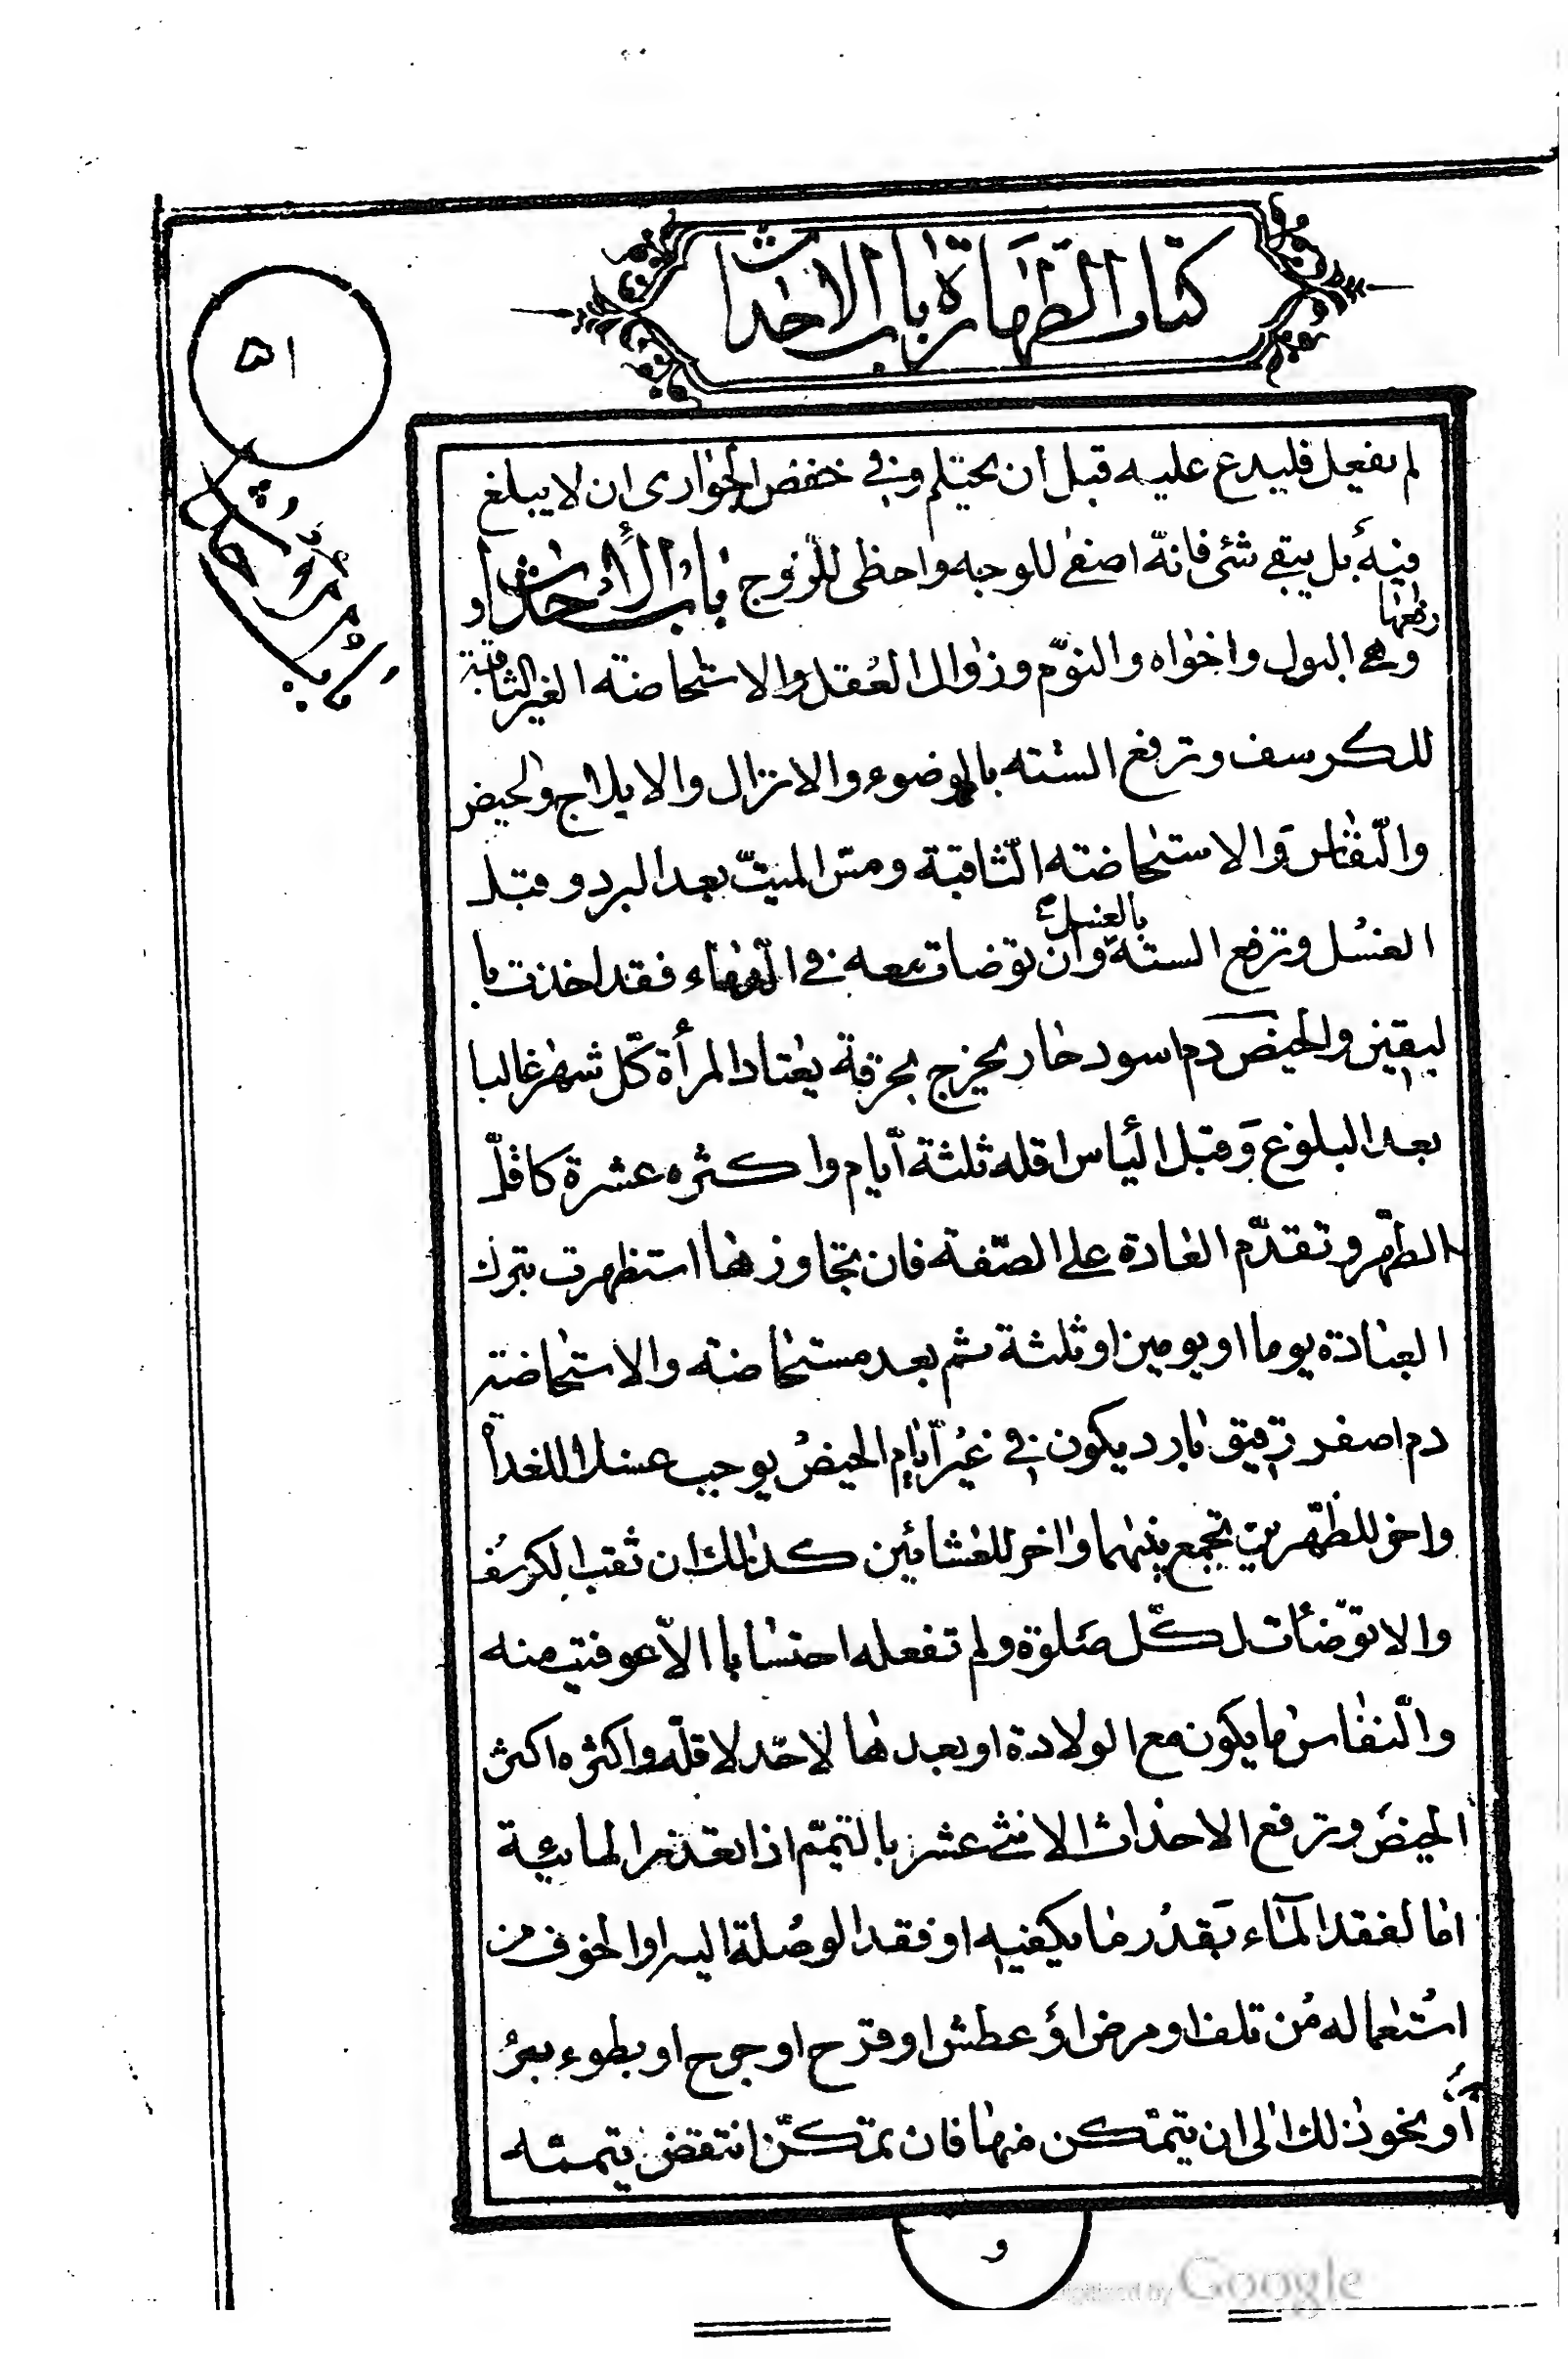 كتاب الطهارة باب الاحداث
٥١
لم يفعل فليدع عليه قبل ان يحتلم وفى خفض الجوارى ان لا يبلغ
فيه بل يبقى شئ فانه اصفى للوجه واحظى للزوج باب الأحداث و
رفعها
وهى البول واخواه والنوم وزوال العقل والاستحاضة الغير الثاقبة
للكرسف وترفع الستة بالوضوء والانزال والايلاج والحيض
والنفاس والاستحاضة الثاقبة ومس الميت بعد البرد وقبل
بالغسل
الغسل وترفع الستة وان توضات معه فى
فقد اخذت با
ليقين والحيض دم اسود حار يخرج بحرقة يعتاد المرأة كل شهر غالبا
بعد البلوغ وقبل اليأس اقله ثلثة ايام واكثره عشرة كاقل
الطهر وتقدم العادة على الصفة فان تجاوزها استظهرت بترك
العبادة يوما او يومين او ثلثة ثم بعد مستحاضة والاستحاضة
دم اصفر رقيق بارد يكون فى غير ايام الحيض يوجب غسلا للغداة
واخر للظهرين تجمع بينهما واخر للعشائين كذلك ان ثقب الكرسف
والا توضأت لكل صلوة ولم تفعله احتسابا الا عوفيت منه
والنفاس ما يكون مع الولادة او بعدها لا حد لاقله واكثره اكثر
الحيض وترفع الاحداث الاثنى عشر بالتيمم اذا تعذر المائية
اما لفقد الماء بقدر ما يكفيه او فقد الوصلة اليه او الخوف من
استعماله من تلف او مرض او عطش او قرح او جرح او بطوء برء
او نحو ذلك الى ان يتمكن منها فان تمكن انتقض تيممه
و
Digitized by Google